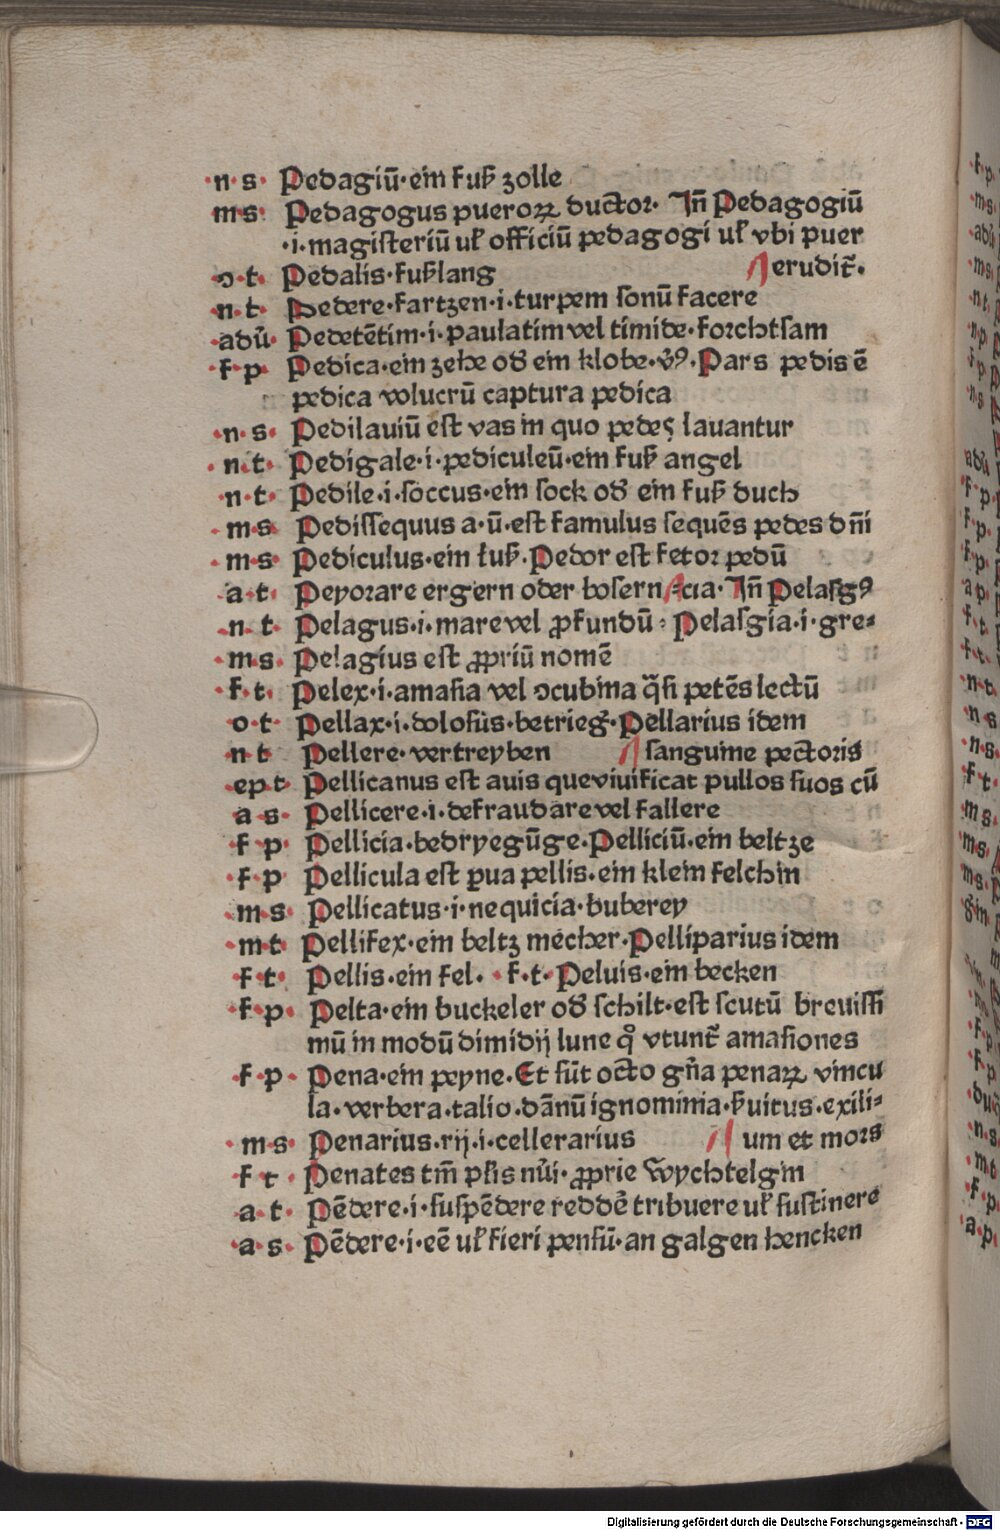 ·n·s· Pedagiū·ein fuß zolle
m·s· Pedagogus pueroꝝ ductor· Jñ Pedagogiū
·i·magisteriū uł officiū pedagogi uł vbi puer
ↄ·t· Pedalis·fußlang erudit̄·
·n·t· Pedere·fartzen·i·turpem sonū facere
·adū· Pedetētim·i·paulatim vel timide·forchtsam
·f·p· Pedica·ein zehe od̄ ein klobe·v̄ꝰ·Pars pedis ē
pedica volucrū captura pedica
·n·s· Pedilauiū est vas in quo pedes lauantur
·n·t· Pedigale·i·pediculeū·ein fuß angel
·n·t· Pedile·i·soccus·ein sock od̄ ein fuß duch
·m·s· Pedissequus a·ū·est famulus sequēs pedes dn̄i
·m·s· Pediculus·ein luß·Pedor est fetor pedū
·a·t· Peyorare ergern oder bosern cia·Jñ Pelasgꝰ
·n·t· Pelagus·i·mare vel ꝓfundū· Pelasgia·i·gre⸗
·m·s· Pelagius est ꝓpriū nomē
·f·t· Pelex·i·amasia vel ↄcubina q̄si petēs lectū
o·t· Pellax·i·dolosus·betrieg̃·Pellarius idem
n·t Pellere·vertreyben sanguine pectoris
·ep·t· Pellicanus est auis que viuificat pullos suos cū
a·s· Pellicere·i·defraudare vel fallere
·f·p· Pellicia·bedryegūge·Pelliciū·ein beltze
·f·p Pellicula est ꝑua pellis·ein klein felchin
·m·s· Pellicatus·i·nequicia·buberey
·m·t· Pellifex·ein beltz mecher·Pelliparius idem
·f·t· Pellis·ein fel· ·f·t·Peluis·ein becken
·f·p· Pelta·ein buckeler od̄ schilt·est scutū breuissi
mū in modū dimidij lune qͦ vtunt̄ amasiones
·f·p· Pena·ein peyne·Et sūt octo gn̄a penaꝝ vincu
la·verbera·talio·dānū ignominia·ẜuitus·exili⸗
·m·s· Penarius·rij·i·cellerarius um et mors
·f·t· Penates tm̄ plis nūi·ꝓprie wychtelgin
·a·t· Pēdere·i·suspēdere reddē tribuere uł sustinere
·a·s· Pēdere·i·eē uł fieri pensū·an galgen hencken
Digitalisierung gefördert durch die Deutsche Forschungsgemeinschaft - DFG